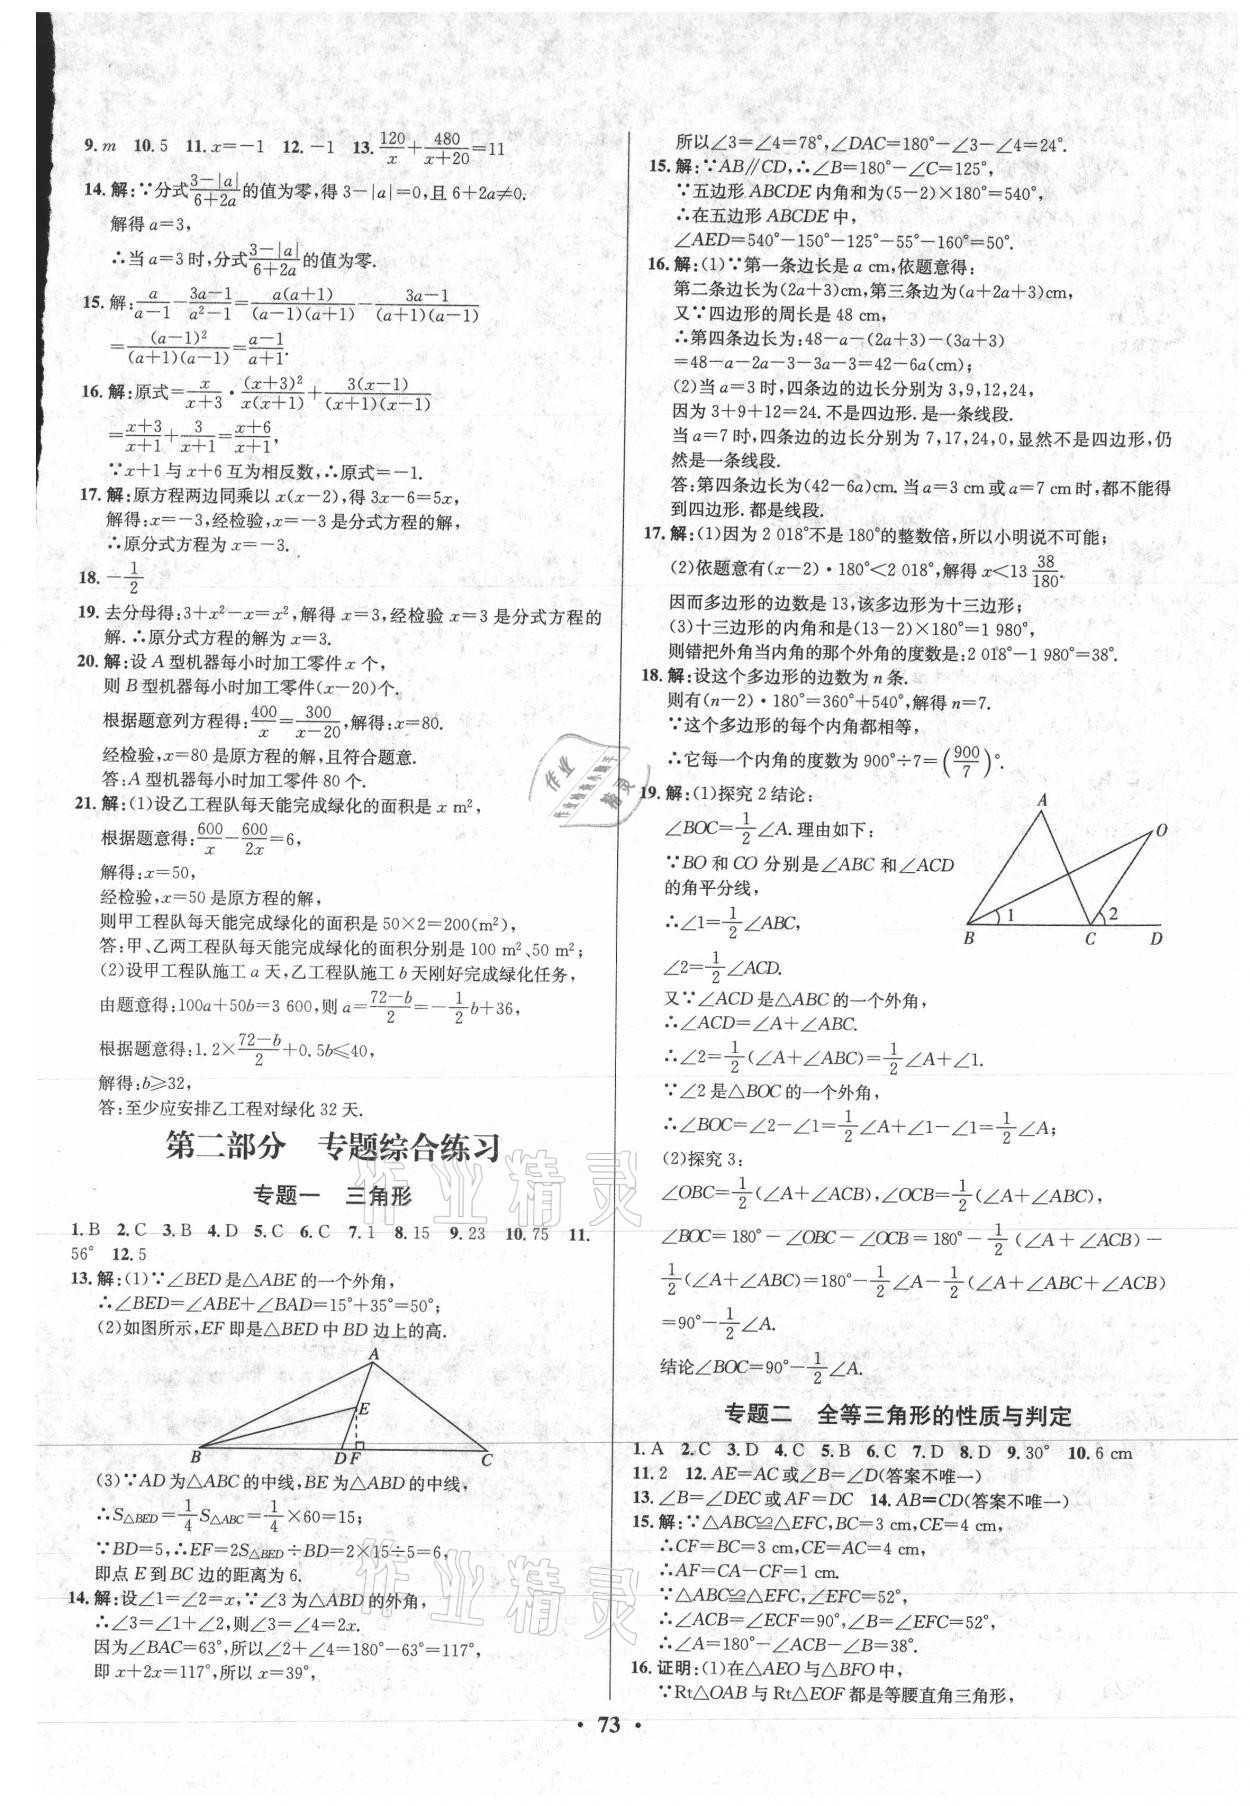 9. m　10. 5　11. x=-1　12. -1　13. 120/x+480/(x+20)=11
14. 解:∵分式(3-|a|)/(6+2a)的值为零,得 3-|a|=0,且 6+2a≠0.
解得 a=3,
∴当 a=3 时,分式(3-|a|)/(6+2a)的值为零.
15. 解: a/(a-1)-(3a-1)/(a²-1)=a(a+1)/(a-1)(a+1)-(3a-1)/(a+1)(a-1)
=(a-1)²/(a+1)(a-1)=(a-1)/(a+1).
16. 解:原式=x/(x+3)·(x+3)²/x(x+1)+3(x-1)/(x+1)(x-1)
=(x+3)/(x+1)+3/(x+1)=(x+6)/(x+1),
∵x+1 与 x+6 互为相反数,∴原式=-1.
17. 解:原方程两边同乘以 x(x-2),得 3x-6=5x,
解得:x=-3,经检验,x=-3 是分式方程的解,
∴原分式方程为 x=-3.
18. -1/2
19. 去分母得:3+x²-x=x²,解得 x=3,经检验 x=3 是分式方程的
解.∴原分式方程的解为 x=3.
20. 解:设 A 型机器每小时加工零件 x 个,
则 B 型机器每小时加工零件(x-20)个.
根据题意列方程得:400/x=300/(x-20),解得:x=80.
经检验,x=80 是原方程的解,且符合题意.
答:A 型机器每小时加工零件 80 个.
21. 解:(1)设乙工程队每天能完成绿化的面积是 x m²,
根据题意得:600/x-600/2x=6,
解得:x=50,
经检验,x=50 是原方程的解,
则甲工程队每天能完成绿化的面积是 50×2=200(m²),
答:甲、乙两工程队每天能完成绿化的面积分别是 100 m²、50 m²;
(2)设甲工程队施工 a 天,乙工程队施工 b 天刚好完成绿化任务,
由题意得:100a+50b=3 600,则 a=(72-b)/2=-1/2b+36,
根据题意得:1.2×(72-b)/2+0.5b≤40,
解得:b≥32,
答:至少应安排乙工程对绿化 32 天.
第二部分　专题综合练习
专题一　三角形
1. B　2. C　3. B　4. D　5. C　6. C　7. 1　8. 15　9. 23　10. 75　11.
56°　12. 5
13. 解:(1)∵∠BED 是△ABE 的一个外角,
∴∠BED=∠ABE+∠BAD=15°+35°=50°;
(2)如图所示,EF 即是△BED 中 BD 边上的高.
A
E
B　D F　C
(3)∵AD 为△ABC 的中线,BE 为△ABD 的中线,
∴S△BED=1/4S△ABC=1/4×60=15;
∵BD=5,∴EF=2S△BED÷BD=2×15÷5=6,
即点 E 到 BC 边的距离为 6.
14. 解:设∠1=∠2=x,∵∠3 为△ABD 的外角,
∴∠3=∠1+∠2,则∠3=∠4=2x.
因为∠BAC=63°,所以∠2+∠4=180°-63°=117°,
即 x+2x=117°,所以 x=39°,
所以∠3=∠4=78°,∠DAC=180°-∠3-∠4=24°.
15. 解:∵AB∥CD,∴∠B=180°-∠C=125°,
∵五边形 ABCDE 内角和为(5-2)×180°=540°,
∴在五边形 ABCDE 中,
∠AED=540°-150°-125°-55°-160°=50°.
16. 解:(1)∵第一条边长是 a cm,依题意得:
第二条边长为(2a+3)cm,第三条边为(a+2a+3)cm,
又∵四边形的周长是 48 cm,
∴第四条边长为:48-a-(2a+3)-(3a+3)
=48-a-2a-3-3a-3=42-6a(cm);
(2)当 a=3 时,四条边的边长分别为 3,9,12,24,
因为 3+9+12=24.不是四边形.是一条线段.
当 a=7 时,四条边的边长分别为 7,17,24,0,显然不是四边形,仍
然是一条线段.
答:第四条边长为(42-6a)cm.当 a=3 cm 或 a=7 cm 时,都不能得
到四边形.都是线段.
17. 解:(1)因为 2 018°不是 180°的整数倍,所以小明说不可能;
(2)依题意有(x-2)·180°<2 018°,解得 x<13 38/180.
因而多边形的边数是 13,该多边形为十三边形;
(3)十三边形的内角和是(13-2)×180°=1 980°,
则错把外角当内角的那个外角的度数是:2 018°-1 980°=38°.
18. 解:设这个多边形的边数为 n 条.
则有(n-2)·180°=360°+540°,解得 n=7.
∵这个多边形的每个内角都相等,
∴它每一个内角的度数为 900°÷7=(900/7)°.
19. 解:(1)探究 2 结论:
∠BOC=1/2∠A.理由如下:
∵BO 和 CO 分别是∠ABC 和∠ACD
的角平分线,
∴∠1=1/2∠ABC,
∠2=1/2∠ACD.
A
O
1　2
B　C　D
又∵∠ACD 是△ABC 的一个外角,
∴∠ACD=∠A+∠ABC.
∴∠2=1/2(∠A+∠ABC)=1/2∠A+∠1.
∵∠2 是△BOC 的一个外角,
∴∠BOC=∠2-∠1=1/2∠A+∠1-∠1=1/2∠A;
(2)探究 3:
∠OBC=1/2(∠A+∠ACB),∠OCB=1/2(∠A+∠ABC),
∠BOC=180°-∠OBC-∠OCB=180°-1/2(∠A+∠ACB)-
1/2(∠A+∠ABC)=180°-1/2∠A-1/2(∠A+∠ABC+∠ACB)
=90°-1/2∠A.
结论∠BOC=90°-1/2∠A.
专题二　全等三角形的性质与判定
1. A　2. C　3. D　4. C　5. B　6. C　7. D　8. D　9. 30°　10. 6 cm
11. 2　12. AE=AC 或∠B=∠D(答案不唯一)
13. ∠B=∠DEC 或 AF=DC　14. AB=CD(答案不唯一)
15. 解:∵△ABC≌△EFC,BC=3 cm,CE=4 cm,
∴CF=BC=3 cm,CE=AC=4 cm,
∴AF=CA-CF=1 cm.
∵△ABC≌△EFC,∠EFC=52°,
∴∠ACB=∠ECF=90°,∠B=∠EFC=52°,
∴∠A=180°-∠ACB-∠B=38°.
16. 证明:(1)在△AEO 与△BFO 中,
∵Rt△OAB 与 Rt△EOF 都是等腰直角三角形,
· 73 ·
作业精灵
作业精灵